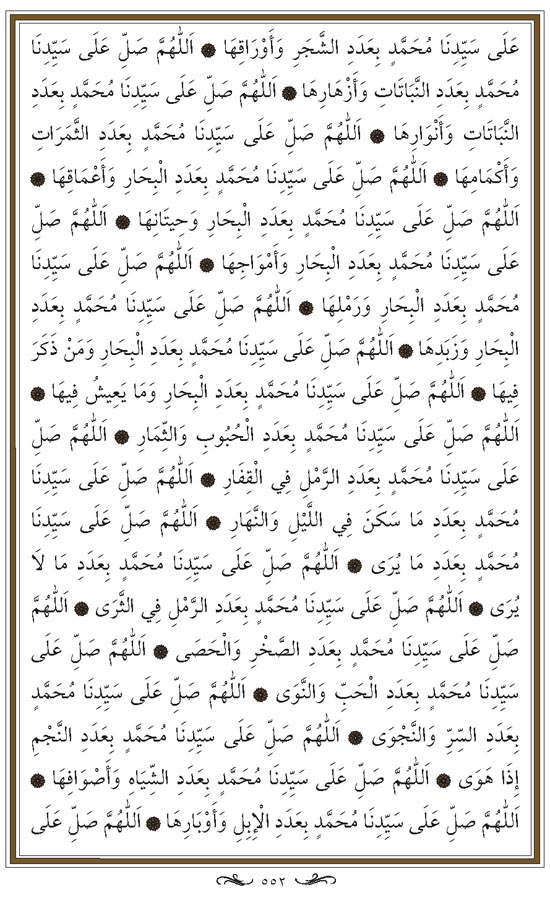 عَلَى سَيِّدِنَا مُحَمَّدٍ بِعَدَدِ الشَّجَرِ وَأَوْرَاقِهَا ۞ اَللّٰهُمَّ صَلِّ عَلَى سَيِّدِنَا
مُحَمَّدٍ بِعَدَدِ النَّبَاتَاتِ وَأَزْهَارِهَا ۞ اَللّٰهُمَّ صَلِّ عَلَى سَيِّدِنَا مُحَمَّدٍ بِعَدَدِ
النَّبَاتَاتِ وَأَنْوَارِهَا ۞ اَللّٰهُمَّ صَلِّ عَلَى سَيِّدِنَا مُحَمَّدٍ بِعَدَدِ الثَّمَرَاتِ
وَأَكْمَامِهَا ۞ اَللّٰهُمَّ صَلِّ عَلَى سَيِّدِنَا مُحَمَّدٍ بِعَدَدِ الْبِحَارِ وَأَعْمَاقِهَا ۞
اَللّٰهُمَّ صَلِّ عَلَى سَيِّدِنَا مُحَمَّدٍ بِعَدَدِ الْبِحَارِ وَحِيتَانِهَا ۞ اَللّٰهُمَّ صَلِّ
عَلَى سَيِّدِنَا مُحَمَّدٍ بِعَدَدِ الْبِحَارِ وَأَمْوَاجِهَا ۞ اَللّٰهُمَّ صَلِّ عَلَى سَيِّدِنَا
مُحَمَّدٍ بِعَدَدِ الْبِحَارِ وَرَمْلِهَا ۞ اَللّٰهُمَّ صَلِّ عَلَى سَيِّدِنَا مُحَمَّدٍ بِعَدَدِ
الْبِحَارِ وَزَبَدِهَا ۞ اَللّٰهُمَّ صَلِّ عَلَى سَيِّدِنَا مُحَمَّدٍ بِعَدَدِ الْبِحَارِ وَمَنْ ذَكَرَ
فِيهَا ۞ اَللّٰهُمَّ صَلِّ عَلَى سَيِّدِنَا مُحَمَّدٍ بِعَدَدِ الْبِحَارِ وَمَا يَعِيشُ فِيهَا ۞
اَللّٰهُمَّ صَلِّ عَلَى سَيِّدِنَا مُحَمَّدٍ بِعَدَدِ الْحُبُوبِ وَالثِّمَارِ ۞ اَللّٰهُمَّ صَلِّ
عَلَى سَيِّدِنَا مُحَمَّدٍ بِعَدَدِ الرَّمْلِ فِي الْقِفَارِ ۞ اَللّٰهُمَّ صَلِّ عَلَى سَيِّدِنَا
مُحَمَّدٍ بِعَدَدِ مَا سَكَنَ فِي اللَّيْلِ وَالنَّهَارِ ۞ اَللّٰهُمَّ صَلِّ عَلَى سَيِّدِنَا
مُحَمَّدٍ بِعَدَدِ مَا يُرَى ۞ اَللّٰهُمَّ صَلِّ عَلَى سَيِّدِنَا مُحَمَّدٍ بِعَدَدِ مَا لَا
يُرَى ۞ اَللّٰهُمَّ صَلِّ عَلَى سَيِّدِنَا مُحَمَّدٍ بِعَدَدِ الرَّمْلِ فِي الثَّرَى ۞ اَللّٰهُمَّ
صَلِّ عَلَى سَيِّدِنَا مُحَمَّدٍ بِعَدَدِ الصَّخْرِ وَالْحَصَى ۞ اَللّٰهُمَّ صَلِّ عَلَى
سَيِّدِنَا مُحَمَّدٍ بِعَدَدِ الْحَبِّ وَالنَّوَى ۞ اَللّٰهُمَّ صَلِّ عَلَى سَيِّدِنَا مُحَمَّدٍ
بِعَدَدِ السِّرِّ وَالنَّجْوَى ۞ اَللّٰهُمَّ صَلِّ عَلَى سَيِّدِنَا مُحَمَّدٍ بِعَدَدِ النَّجْمِ
إِذَا هَوَى ۞ اَللّٰهُمَّ صَلِّ عَلَى سَيِّدِنَا مُحَمَّدٍ بِعَدَدِ الشِّيَاهِ وَأَصْوَافِهَا ۞
اَللّٰهُمَّ صَلِّ عَلَى سَيِّدِنَا مُحَمَّدٍ بِعَدَدِ الْإِبِلِ وَأَوْبَارِهَا ۞ اَللّٰهُمَّ صَلِّ عَلَى
٥٥٢